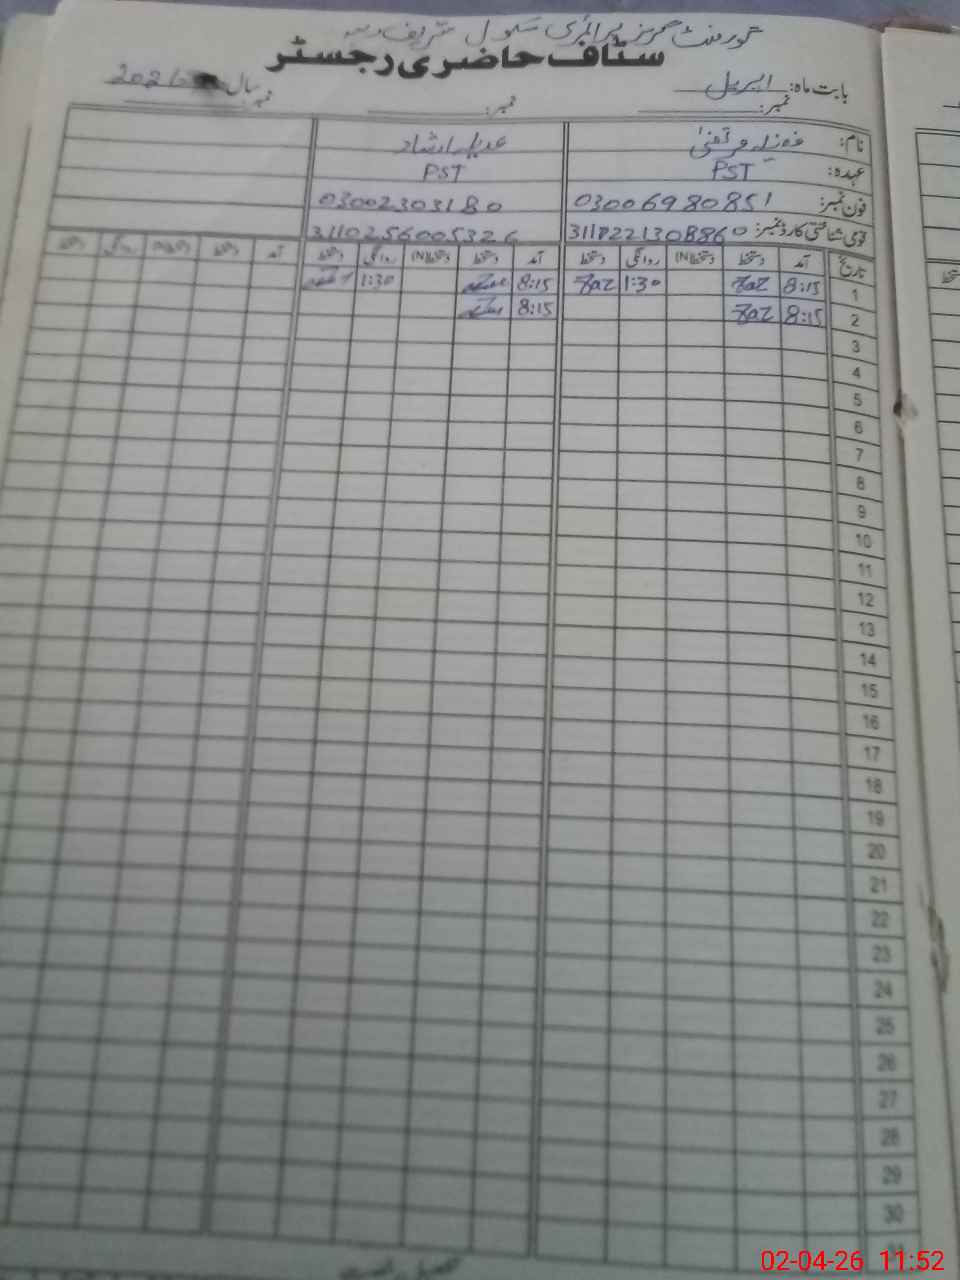 گورنمنٹ گرلز پرائمری سکول شریف
سٹاف حاضری رجسٹر
بابت ماہ: اپریل سال 202
نمبر: نمبر: نمبر:
نام: فوزیہ مرتضیٰ عدیلہ ارشاد
عہدہ: PST PST
فون نمبر: 03006980851 03002303180
قومی شناختی کارڈ نمبر: 3118221308860 311025600532
تاریخ آمد دستخط دستخط(N) روانگی دستخط آمد دستخط دستخط(N) روانگی دستخط آمد دستخط دستخط(N) روانگی دستخط
1 8:15 Zaz 1:30 Zaz 8:15 1:30
2 8:15 Zaz 8:15
3
4
5
6
7
8
9
10
11
12
13
14
15
16
17
18
19
20
21
22
23
24
25
26
27
28
29
30
31
02-04-26 11:52